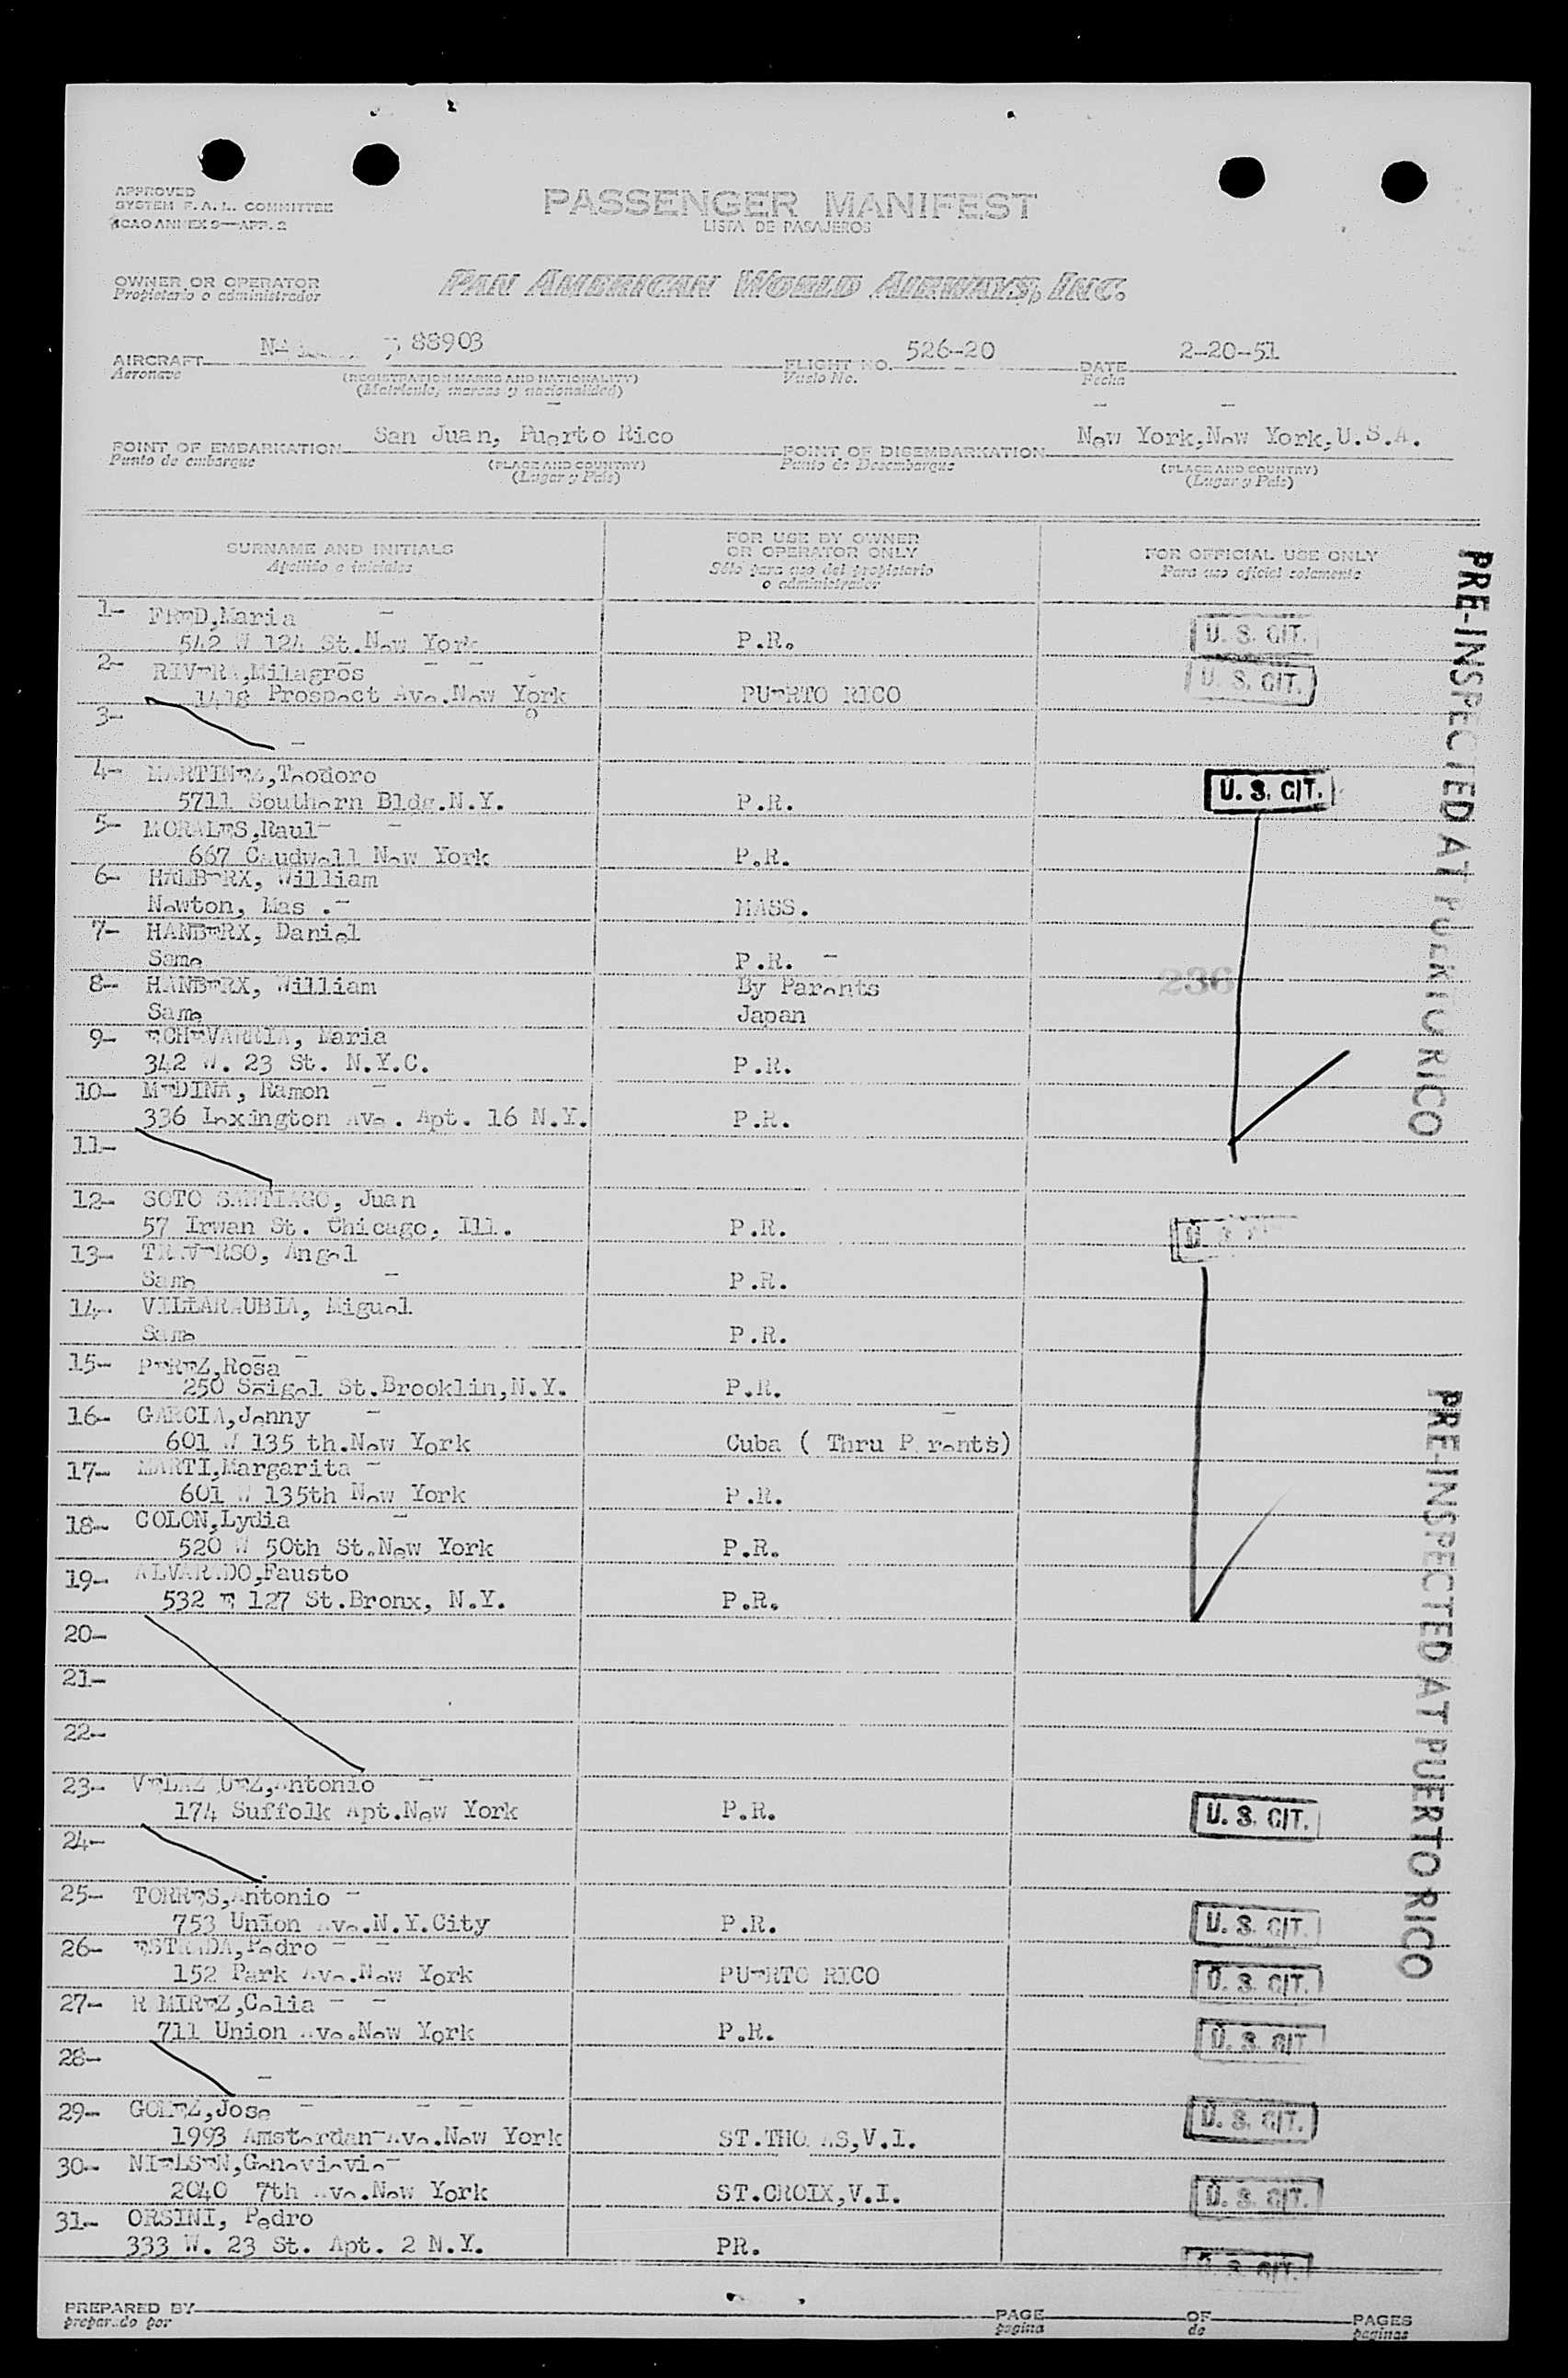 APPROVED
SYSTEM F. A. L. COMMITTEE
ICAO ANNEX 9—APP. 2
PASSENGER MANIFEST
LISTA DE PASAJEROS
OWNER OR OPERATOR
Propietario o administrador
PAN AMERICAN WORLD AIRWAYS, INC.
AIRCRAFT 88903
Aeronave
(REGISTRATION MARKS AND NATIONALITY)
(Matrícula, marcas y nacionalidad)
FLIGHT NO. 526-20
Vuelo No.
DATE 2-20-51
Fecha
POINT OF EMBARKATION San Juan, Puerto Rico
Punto de embarque
(PLACE AND COUNTRY)
(Lugar y País)
POINT OF DISEMBARKATION New York,New York,U.S.A.
Punto de Desembarque
(PLACE AND COUNTRY)
(Lugar y País)
SURNAME AND INITIALS
Apellido e iniciales
FOR USE BY OWNER
OR OPERATOR ONLY
Sólo para uso del propietario
o administrador
FOR OFFICIAL USE ONLY
Para uso oficial solamente
1- FRED,Maria
542 W 124 St.New York P.R. U. S. CIT.
2- RIVERA,Milagros
1418 Prospect Ave.New York PUERTO RICO U. S. CIT.
3-
4- MARTINEZ,Teodoro
5711 Southern Bldg.N.Y. P.R. U. S. CIT.
5- MORALES,Raul
667 Caudwell New York P.R.
6- HALBERX, William
Newton, Mas . MASS.
7- HANBERX, Daniel
Same P.R.
8- HANBERX, William By Parents
Same Japan
236
9- ECHEVARRIA, Maria
342 W. 23 St. N.Y.C. P.R.
10- MEDINA, Ramon
336 Lexington Ave. Apt. 16 N.Y. P.R.
11-
12- SOTO SANTIAGO, Juan
57 Irwan St. Chicago, Ill. P.R. U. S.
13- TRAVERSO, Angel
Same P.R.
14- VILLARRUBIA, Miguel
Same P.R.
15- PEREZ,Rosa
250 Seigel St.Brooklin,N.Y. P.R.
16- GARCIA,Jenny
601 W 135 th.New York Cuba ( Thru Parents)
17- MARTI,Margarita
601 W 135th New York P.R.
18- COLON,Lydia
520 W 50th St.New York P.R.
19- ALVARADO,Fausto
532 E 127 St.Bronx, N.Y. P.R.
20-
21-
22-
23- VELAZQUEZ,Antonio
174 Suffolk Apt.New York P.R. U. S. CIT.
24-
25- TORRES,Antonio
753 Union Ave.N.Y.City P.R. U. S. CIT.
26- ESTRADA,Pedro
152 Park Ave.New York PUERTO RICO U. S. CIT.
27- RAMIREZ,Celia
711 Union Ave.New York P.R. U. S. CIT.
28-
29- GOMEZ,Jose
1993 Amsterdan Ave.New York ST.THOMAS,V.I. U. S. CIT.
30- NIELSEN,Genevievie
2040 7th Ave.New York ST.CROIX,V.I. U. S. CIT.
31- ORSINI, Pedro
333 W. 23 St. Apt. 2 N.Y. PR. U. S. CIT.
PRE-INSPECTED AT PUERTO RICO
PRE-INSPECTED AT PUERTO RICO
PREPARED BY
preparado por
PAGE
pagina
OF
de
PAGES
paginas